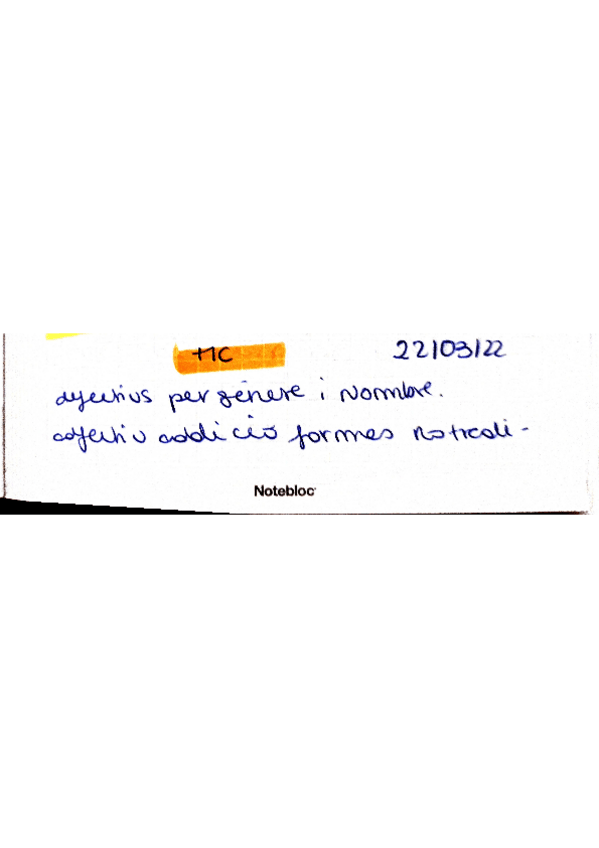 22/03/22
adjectius per gènere i Nombre.
adjectiu addició formes
Notebloc